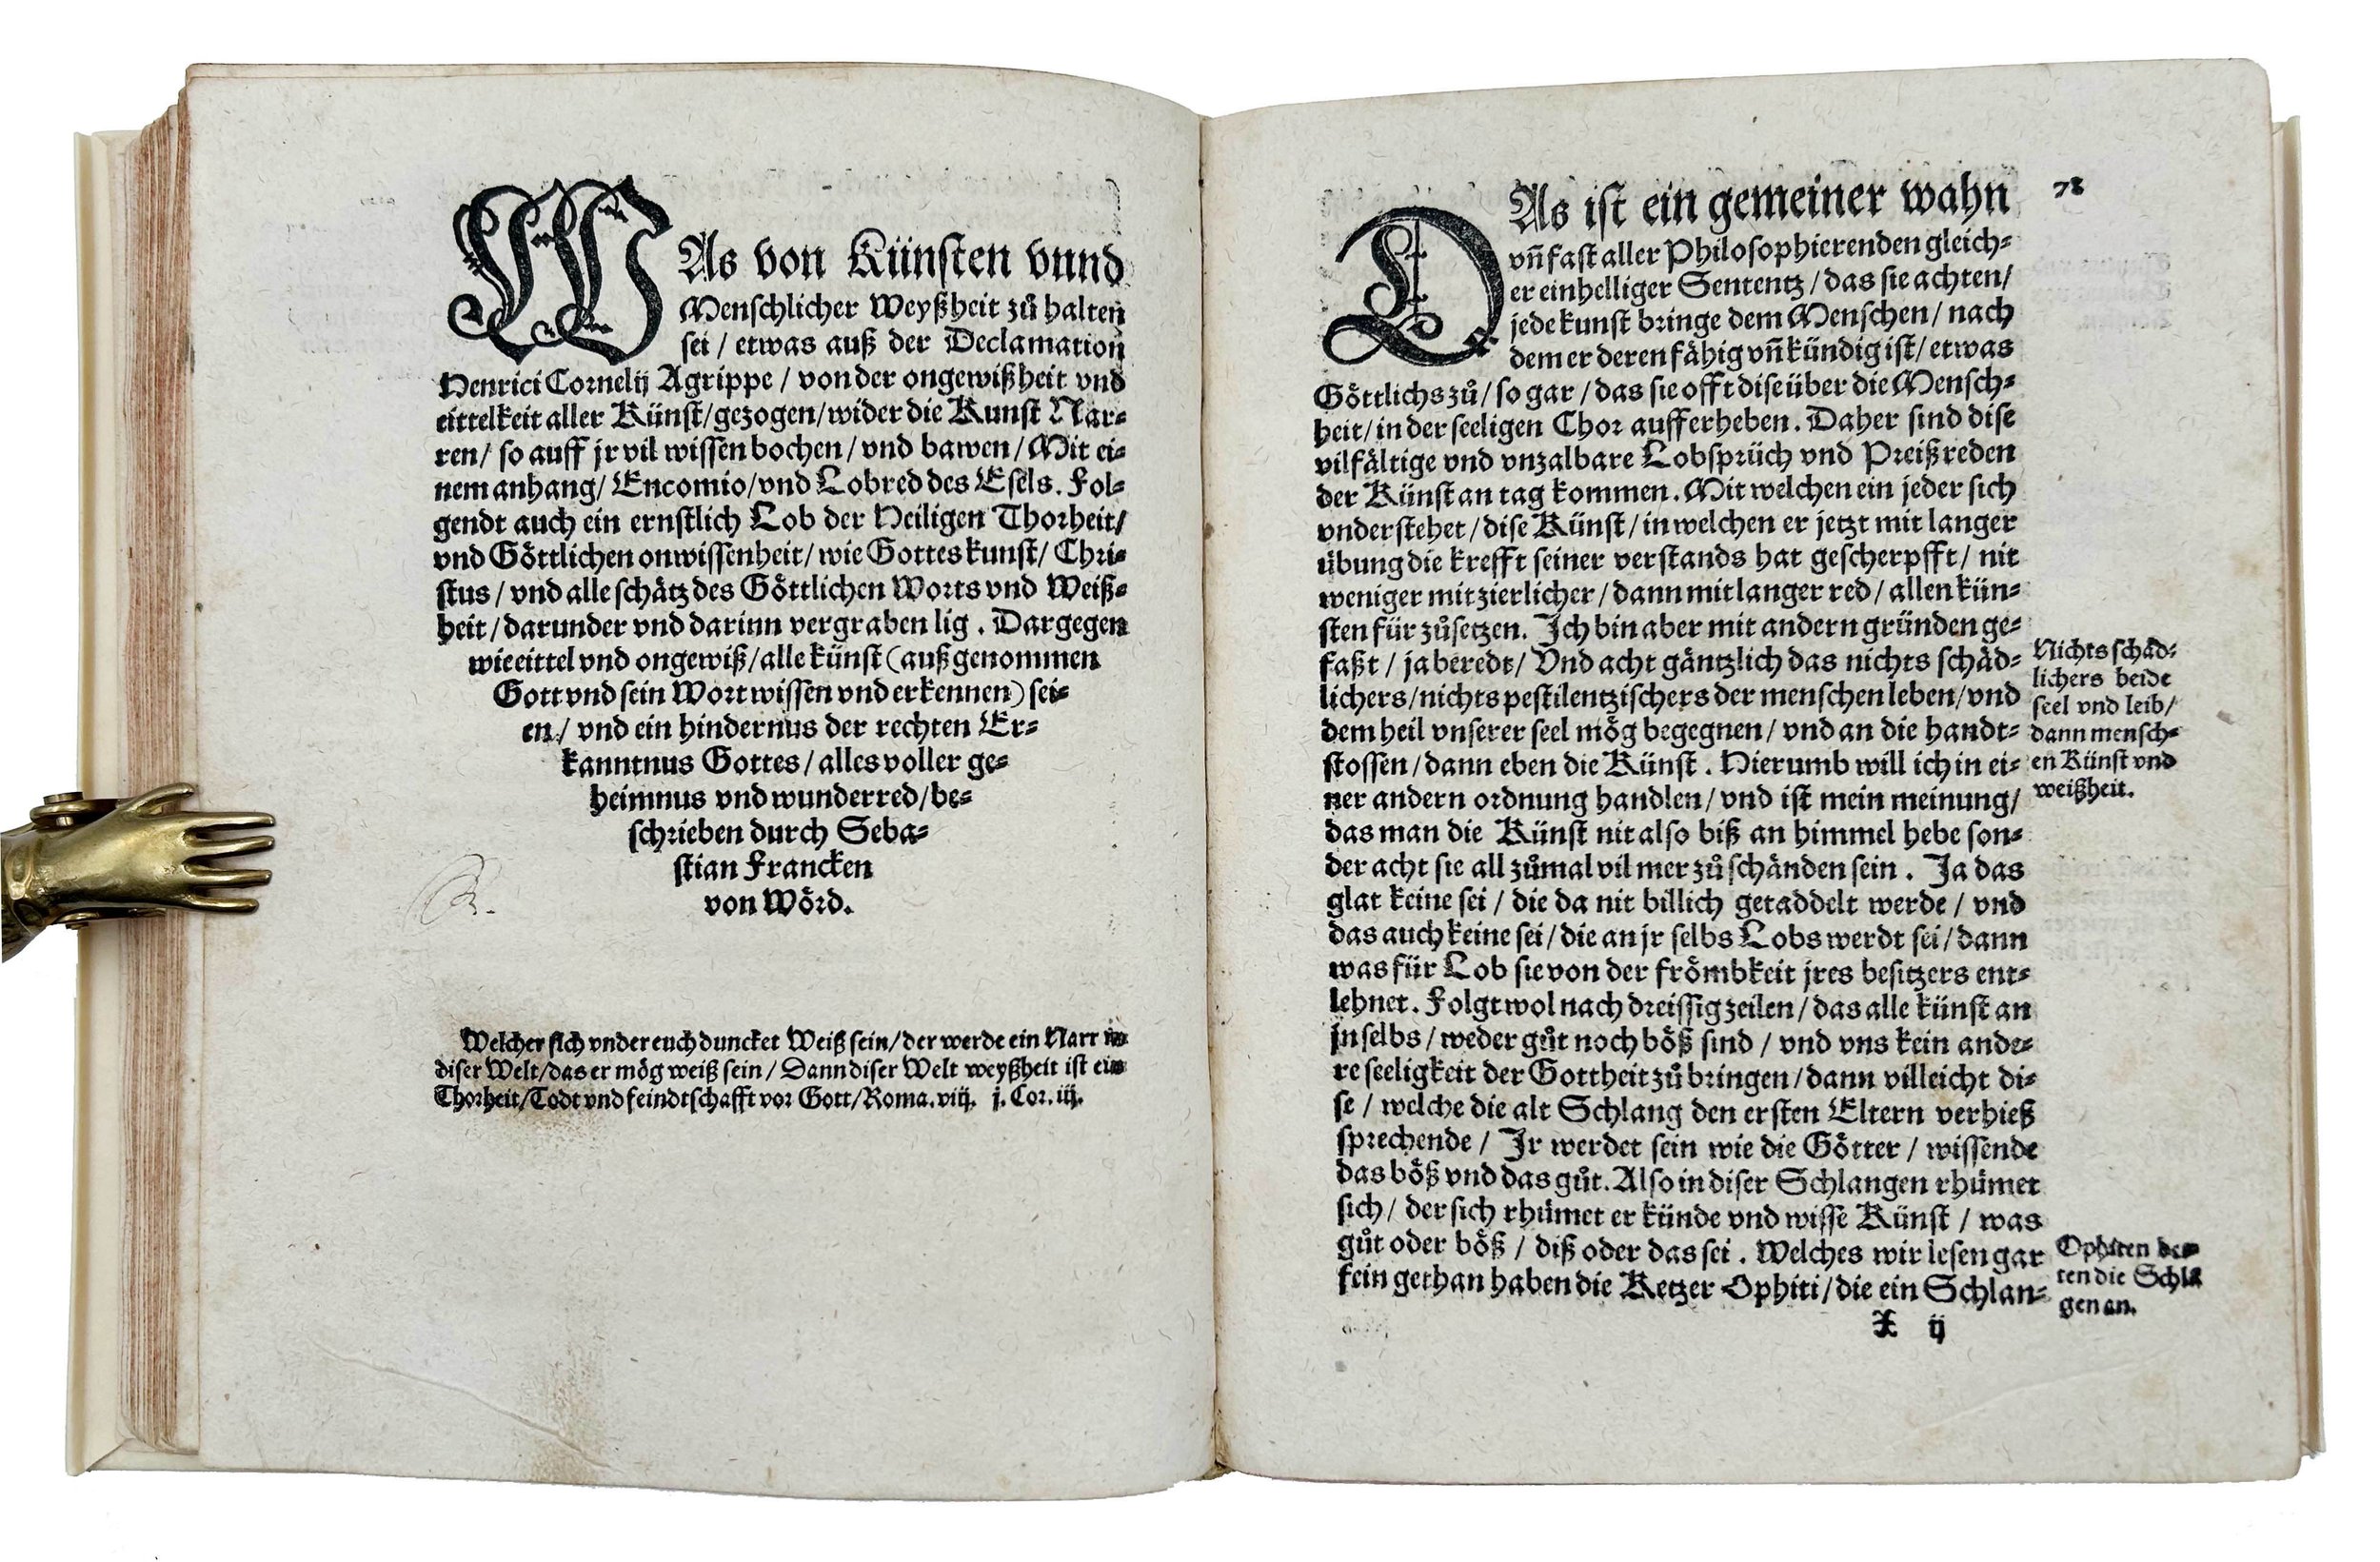 WAs von Künsten vnnd
Menschlicher Weyßheit zů halten
sei / etwas auß der Declamation
Henrici Cornelij Agrippe / von der ongewißheit vnd
eittelkeit aller Künst / gezogen / wider die Kunst Nar⸗
ren / so auff jr vil wissen bochen / vnd bawen / Mit ei⸗
nem anhang / Encomio / vnd Lobred des Esels. Fol⸗
gendt auch ein ernstlich Lob der Heiligen Thorheit /
vnd Göttlichen onwissenheit / wie Gottes kunst / Chri⸗
stus / vnd alle schätz des Göttlichen Worts vnd Weiß⸗
heit / darunder vnd darinn vergraben lig . Dargegen
wie eittel vnd ongewiß / alle künst (auß genommen
Gott vnd sein Wort wissen vnd erkennen) sei⸗
en / vnd ein hindernus der rechten Er⸗
kanntnus Gottes / alles voller ge⸗
heimnus vnd wunderred / be⸗
schrieben durch Seba⸗
stian Francken
von Wörd.
Welcher sich vnder euch duncket Weiß sein / der werde ein Narr in
diser Welt / das er mög weiß sein / Dann diser Welt weyßheit ist ein
Thorheit / Todt vnd feindtschafft vor Gott / Roma. viij. j. Cor. iij.
78
DAs ist ein gemeiner wahn
vn̄ fast aller Philosophierenden gleich⸗
er einhelliger Sententz / das sie achten /
jede kunst bringe dem Menschen / nach
dem er deren fähig vn̄ kündig ist / etwas
Göttlichs zů / so gar / das sie offt dise über die Mensch⸗
heit / in der seeligen Chor aufferheben. Daher sind dise
vilfältige vnd vnzalbare Lobsprüch vnd Preißreden
der Künst an tag kommen. Mit welchen ein jeder sich
vnderstehet / dise Künst / in welchen er jetzt mit langer
übung die krefft seiner verstands hat gescherpfft / nit
weniger mit zierlicher / dann mit langer red / allen kün⸗
sten für zůsetzen. Ich bin aber mit andern gründen ge⸗
faßt / ja beredt / Vnd acht gäntzlich das nichts schäd⸗
lichers / nichts pestilentzischers der menschen leben / vnd
dem heil vnserer seel mög begegnen / vnd an die handt⸗
stossen / dann eben die Künst . Hierumb will ich in ei⸗
ner andern ordnung handlen / vnd ist mein meinung /
das man die Künst nit also biß an himmel hebe son⸗
der acht sie all zůmal vil mer zů schänden sein . Ja das
glat keine sei / die da nit billich getaddelt werde / vnd
das auch keine sei / die an jr selbs Lobs werdt sei / dann
was für Lob sie von der frömbkeit jres besitzers ent⸗
lehnet. Folgt wol nach dreissig zeilen / das alle künst an
jn selbs / weder gůt noch böß sind / vnd vns kein ande⸗
re seeligkeit der Gottheit zů bringen / dann villeicht di⸗
se / welche die alt Schlang den ersten Eltern verhieß
sprechende / Ir werdet sein wie die Götter / wissende
das böß vnd das gůt. Also in diser Schlangen rhümet
sich / der sich rhümet er künde vnd wisse Künst / was
gůt oder böß / diß oder das sei . Welches wir lesen gar
fein gethan haben die Ketzer Ophiti / die ein Schlan⸗
X ij
Nichts schäd⸗
lichers beide
seel vnd leib /
dann mensch⸗
en Künst vnd
weißheit.
Ophiten
ten die
gen an.